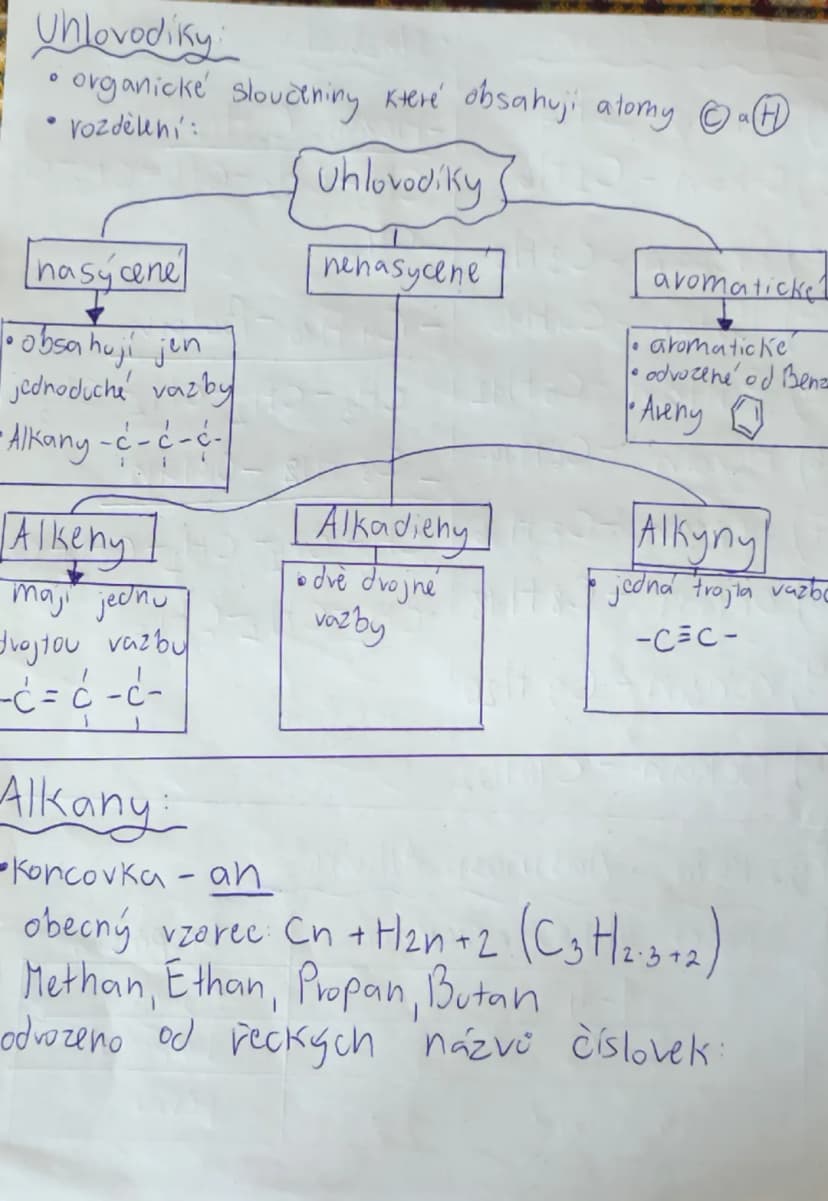 Uhlovodíky:
• organické sloučeniny které obsahují atomy Ⓒ a Ⓗ
• rozdělení:
Uhlovodíky
nasýcené
nenasycené
aromatické
• obsahují jen
jednoduché vazby
• Alkany -C-C-C-
• aromatické
• odvozené od Benz
• Areny
Alkeny
Alkadieny
Alkyny
mají jednu
dvojtou vazbu
-C=C-C-
• dvě dvojné
vazby
• jedná trojta vazba
-C≡C-
Alkany:
• Koncovka - an
obecný vzorec: Cn + H2n+2 (C₃H₂.₃₊₂)
Methan, Ethan, Propan, Butan
odvozeno od řeckých názvů číslovek: